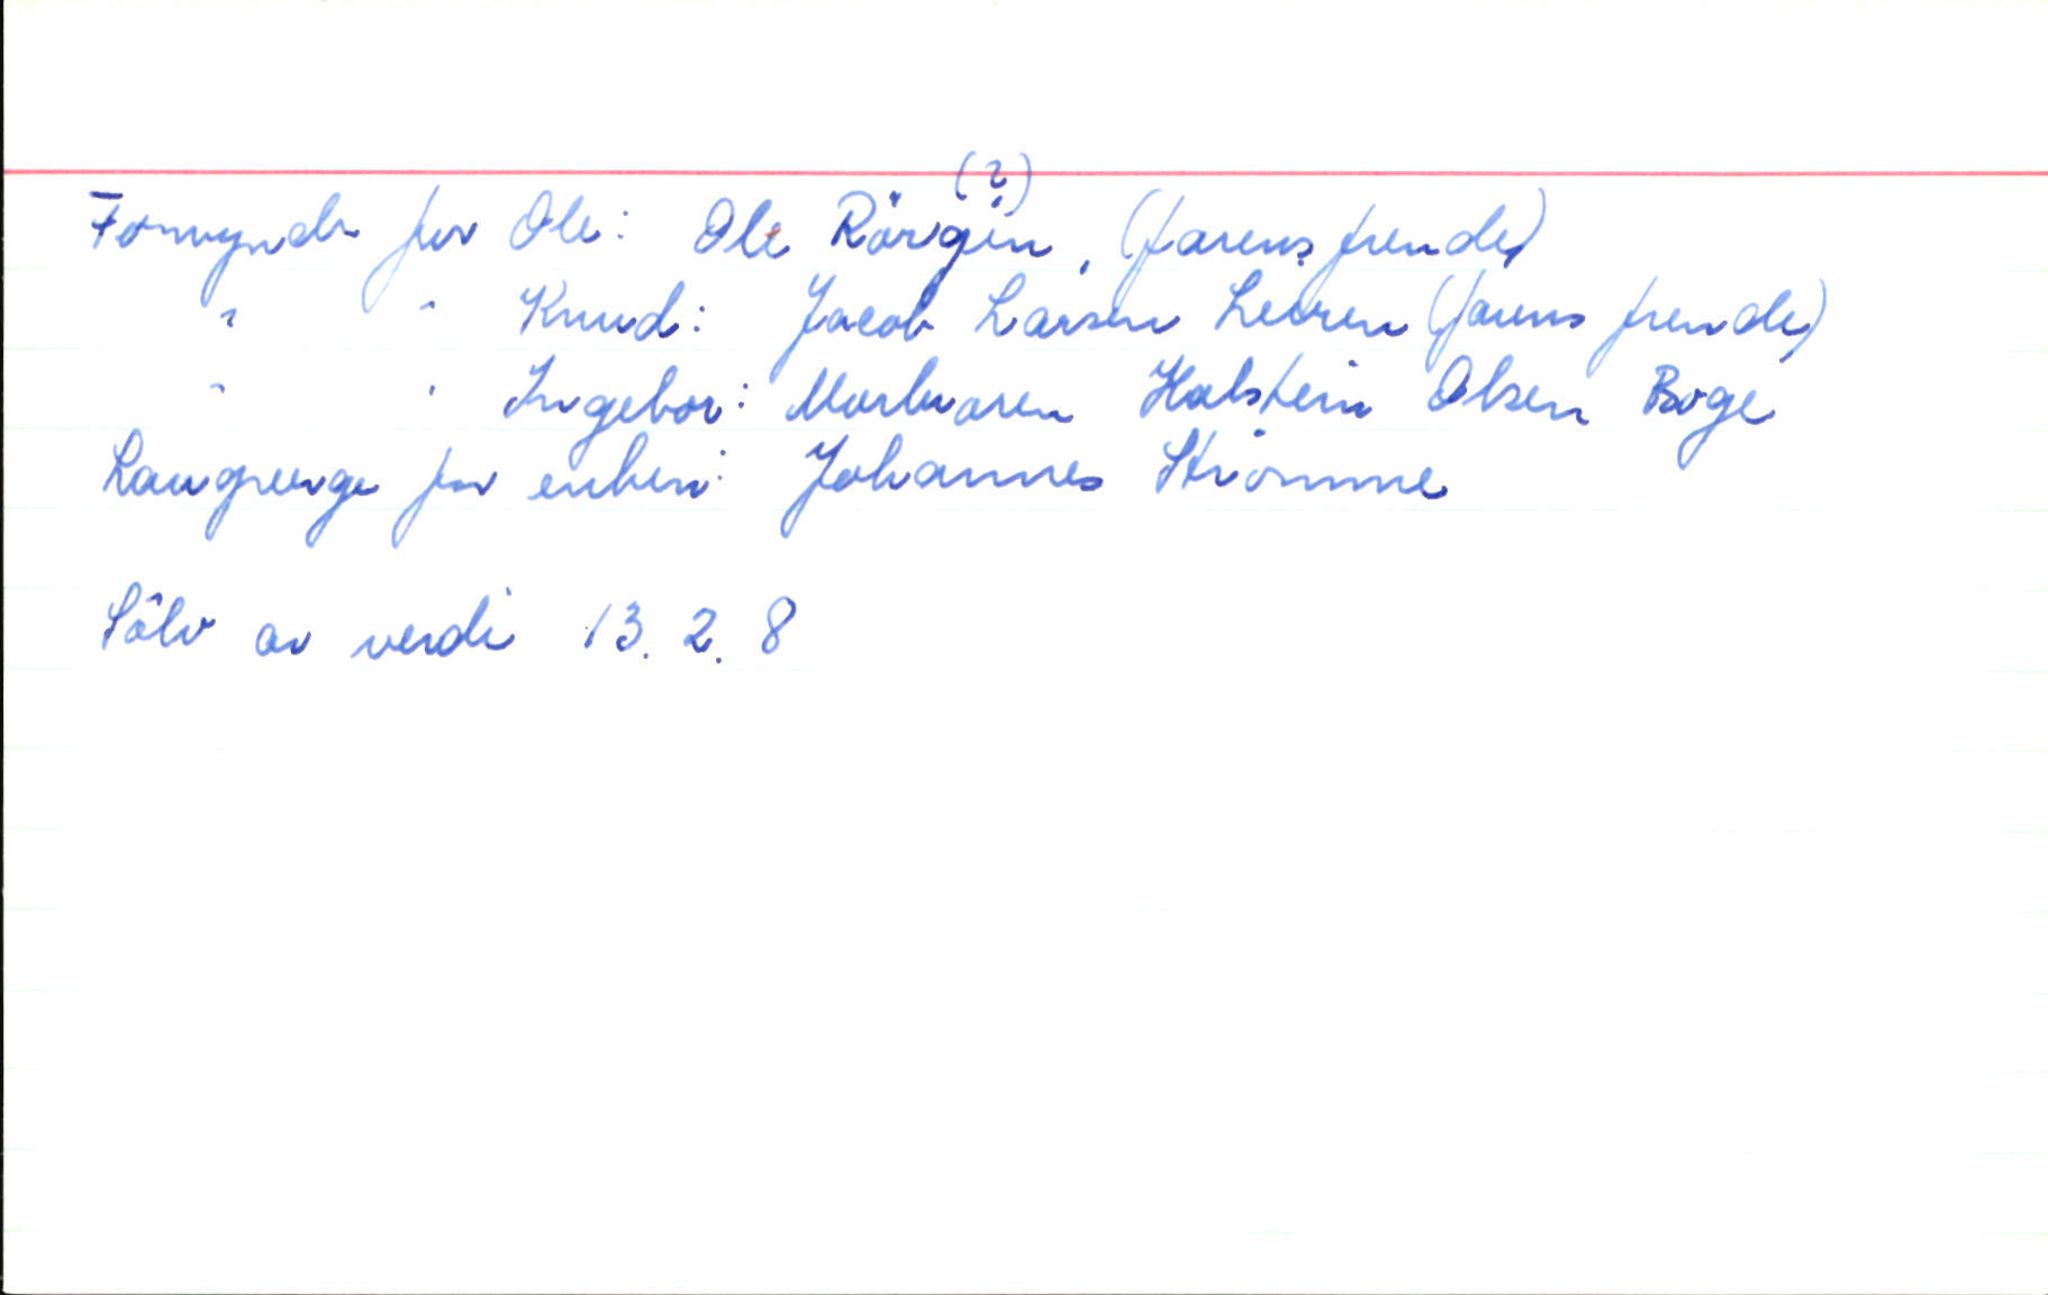 (?)
Formynder for Ole: Ole Rörgin, (farens frende)
" " Knud: Jacob Larsen Leeren (farens frende)
" " Ingebor: Morbroren Halstein Olsen Boge
Laugverge for enken: Johannes Strömme
Sölv av verdi 13. 2. 8